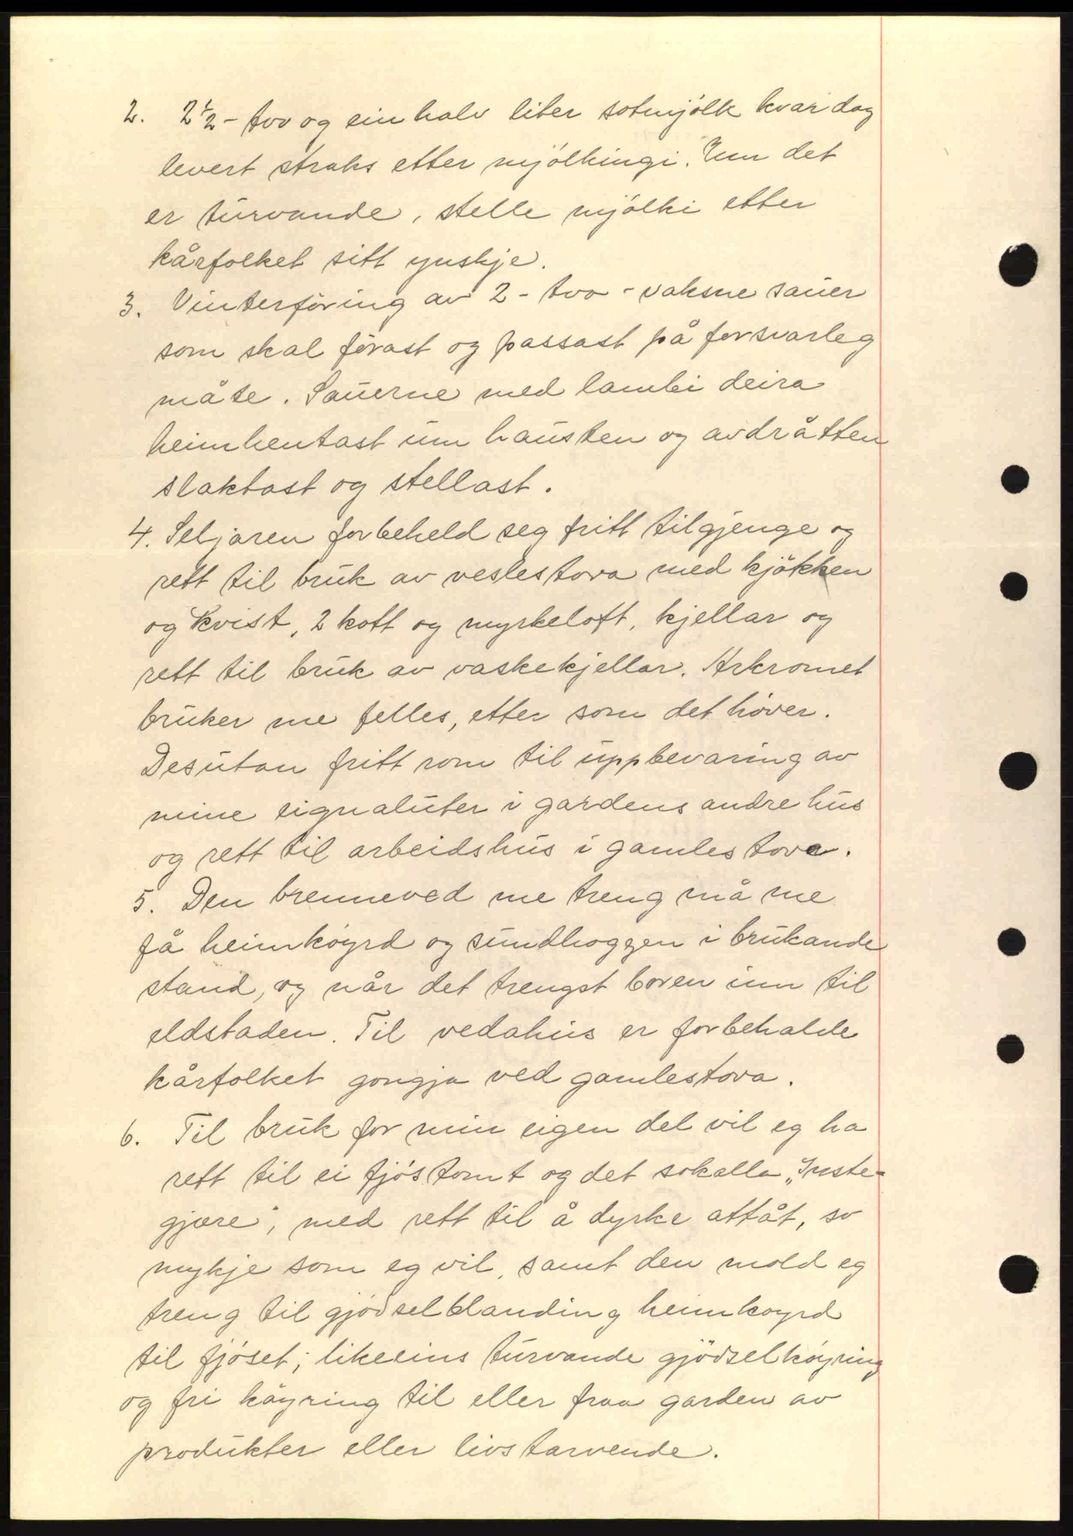 2. 2½ - tvo og ein halv liter sötmjólk kvar dag
levert straks etter mjólkingi. Um det
er turvande, stelle mjólki etter
kårfolket sitt ynskje.
3. Vinterfóring av 2 - tvo - vaksne sauer
som skal fórast og passast på forsvarleg
måte. Sauerne med lambi deira
heimhentast um hausten og avdråtten
slaktast og stellast.
4. Seljaren forbeheld seg fritt tilgjenge og
rett til bruk av veslestova med kjökken
og kvist, 2 kott og myrkeloft, kjellar og
rett til bruk av vaskekjellar. Arkromet
bruker me felles, etter som det höver.
Desutan fritt rom til uppbevaring av
mine eignaluter i gardens andre hus
og rett til arbeidshus i gamlestova.
5. Den brenneved me treng må me
få heimköyrd og sundhoggen i brukande
stand, og når det trengst boren inn til
eldstaden. Til vedahus er forbehalde
kårfolket gongja ved gamlestova.
6. Til bruk for min eigen del vil eg ha
rett til ei fjóstomt og det sokalla „Inste-
gjære", med rett til å dyrke attåt, so
mykje som eg vil, samt den mold eg
treng til gjödselblanding heimköyrd
til fjóset; likeeins turvande gjödselköyring
og fri köyring til eller fraa garden av
produkter eller livstarvende.